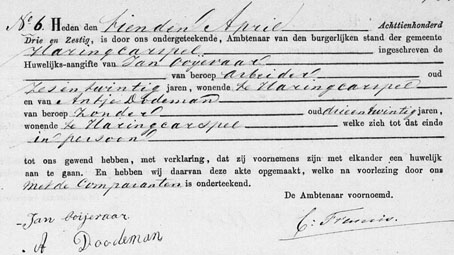 No 6. Heden den tienden April Achttienhonderd
Drie en Zestig, is door ons ondergeteekende, Ambtenaar van den burgerlijken stand der gemeente
Haringcarspel ingeschreven de
Huwelijks-aangifte van Jan Ooijevaar
van beroep Arbeider oud
Zesentwintig jaren, wonende te Haringcarspel
en van Antje Doodeman
van beroep Zonder oud drieentwintig jaren,
wonende te Haringcarspel welke zich tot dat einde
in persoon
tot ons gewend hebben, met verklaring, dat zij voornemens zijn met elkander een huwelijk
aan te gaan. En hebben wij daarvan deze akte opgemaakt, welke na voorlezing door ons
Melde Comparanten is onderteekend.
De Ambtenaar voornoemd.
Jan Ooijevaar
A Doodeman